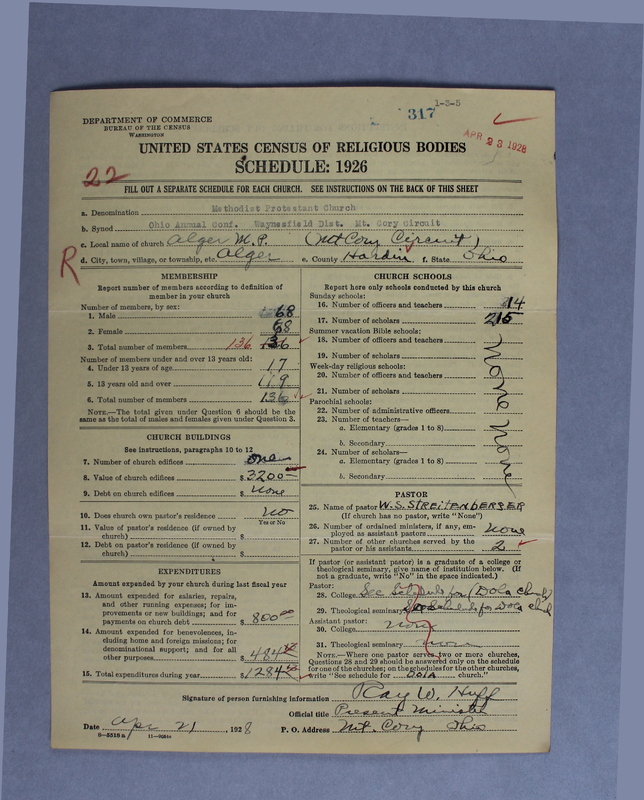 1-3-5
317
DEPARTMENT OF COMMERCE
BUREAU OF THE CENSUS
WASHINGTON
APR 23 1928
UNITED STATES CENSUS OF RELIGIOUS BODIES
SCHEDULE: 1926
22
FILL OUT A SEPARATE SCHEDULE FOR EACH CHURCH. SEE INSTRUCTIONS ON THE BACK OF THIS SHEET
a. Denomination Methodist Protestant Church
b. Synod Ohio Annual Conf. Waynesfield Dist. Mt. Cory Circuit
c. Local name of church Alger M.P. (Mt Cory Circuit)
R
d. City, town, village, or township, etc. Alger e. County Hardin f. State Ohio
MEMBERSHIP
Report number of members according to definition of
member in your church
Number of members, by sex:
1. Male 68
2. Female 68
3. Total number of members 136 136
Number of members under and over 13 years old:
4. Under 13 years of age 17
5. 13 years old and over 119
6. Total number of members 136
NOTE.—The total given under Question 6 should be the
same as the total of males and females given under Question 3.
CHURCH BUILDINGS
See instructions, paragraphs 10 to 12
7. Number of church edifices one
8. Value of church edifices $3200
9. Debt on church edifices $ none
10. Does church own pastor's residence no
Yes or No
11. Value of pastor's residence (if owned by
church) $
12. Debt on pastor's residence (if owned by
church) $
EXPENDITURES
Amount expended by your church during last fiscal year
13. Amount expended for salaries, repairs,
and other running expenses; for im-
provements or new buildings; and for
payments on church debt $ 800.00
14. Amount expended for benevolences, in-
cluding home and foreign missions; for
denominational support; and for all
other purposes $ 484
15. Total expenditures during year $1284
CHURCH SCHOOLS
Report here only schools conducted by this church
Sunday schools:
16. Number of officers and teachers 14
17. Number of scholars 215
Summer vacation Bible schools:
18. Number of officers and teachers
19. Number of scholars
Week-day religious schools:
20. Number of officers and teachers
21. Number of scholars
Parochial schools:
22. Number of administrative officers
23. Number of teachers—
a. Elementary (grades 1 to 8)
b. Secondary
24. Number of scholars—
a. Elementary (grades 1 to 8)
b. Secondary
None None
PASTOR
25. Name of pastor W.S. STREITENBERGER
(If church has no pastor, write "None")
26. Number of ordained ministers, if any, em-
ployed as assistant pastors none
27. Number of other churches served by the
pastor or his assistants 2
If pastor (or assistant pastor) is a graduate of a college or
theological seminary, give name of institution below. (If
not a graduate, write "No" in the space indicated.)
Pastor:
28. College See Schedule for (Dola Church)
29. Theological seminary See schedule for Dola
Assistant pastor:
30. College none
31. Theological seminary none
NOTE.—Where one pastor serves two or more churches,
Questions 28 and 29 should be answered only on the schedule
for one of the churches; on the schedules for the other churches,
write "See schedule for DOLA church."
Signature of person furnishing information Ray W. Huff
Official title Present Minister
Date Apr 21, 1928 P. O. Address Mt. Cory Ohio